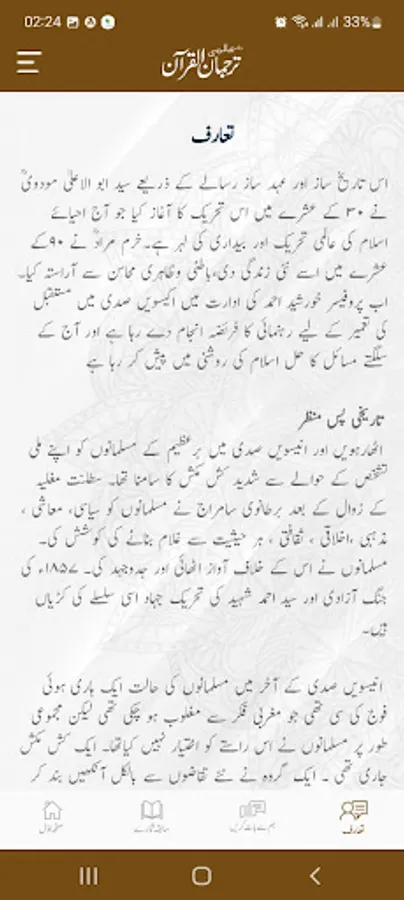 02:24
33%
ترجمان القرآن
تعارف
اس تاریخ ساز اور عہد ساز رسالے کے ذریعے سید ابو الاعلیٰ مودودیؒ
نے ۳۰ کے عشرے میں اس تحریک کا آغاز کیا جو آج احیائے
اسلام کی عالمی تحریک اور بیداری کی لہر ہے۔خرم مرادؒ نے ۹۰کے
عشرے میں اسے نئی زندگی دی،باطنی وظاہری محاسن سے آراستہ کیا۔
اب پروفیسر خورشید احمد کی ادارت میں اکیسویں صدی میں مستقبل
کی تعمیر کے لیے رہنمائی کا فریضہ انجام دے رہا ہے اور آج کے
سلگتے مسائل کا حل اسلام کی روشنی میں پیش کر رہا ہے
تاریخی پس منظر
اٹھارہویں اور انیسویں صدی میں برعظیم کے مسلمانوں کو اپنے ملی
تشخص کے حوالے سے شدید کش مکش کا سامنا تھا۔ سلطنت مغلیہ
کے زوال کے بعد برطانوی سامراج نے مسلمانوں کو سیاسی، معاشی ،
مذہبی ،اخلاقی ، ثقافتی ، ہر حیثیت سے غلام بنانے کی کوشش کی۔
مسلمانوں نے اس کے خلاف آواز اٹھائی اور جدوجہد کی۔ ۱۸۵۷ء کی
جنگ آزادی اور سید احمد شہید کی تحریک جہاد اسی سلسلے کی کڑیاں
ہیں۔
انیسویں صدی کے آخر میں مسلمانوں کی حالت ایک ہاری ہوئی
فوج کی سی تھی جو مغربی فکر سے مغلوب ہو چکی تھی لیکن مجموعی
طور پر مسلمانوں نے اس راستے کو اختیار نہیں کیاتھا۔ ایک کش مکش
جاری تھی ۔ ایک گروہ نے نئے تقاضوں سے بالکل آنکھیں بند کر
تعارف
ہم سے بات کریں
سابقہ شمارے
صفحہ اول